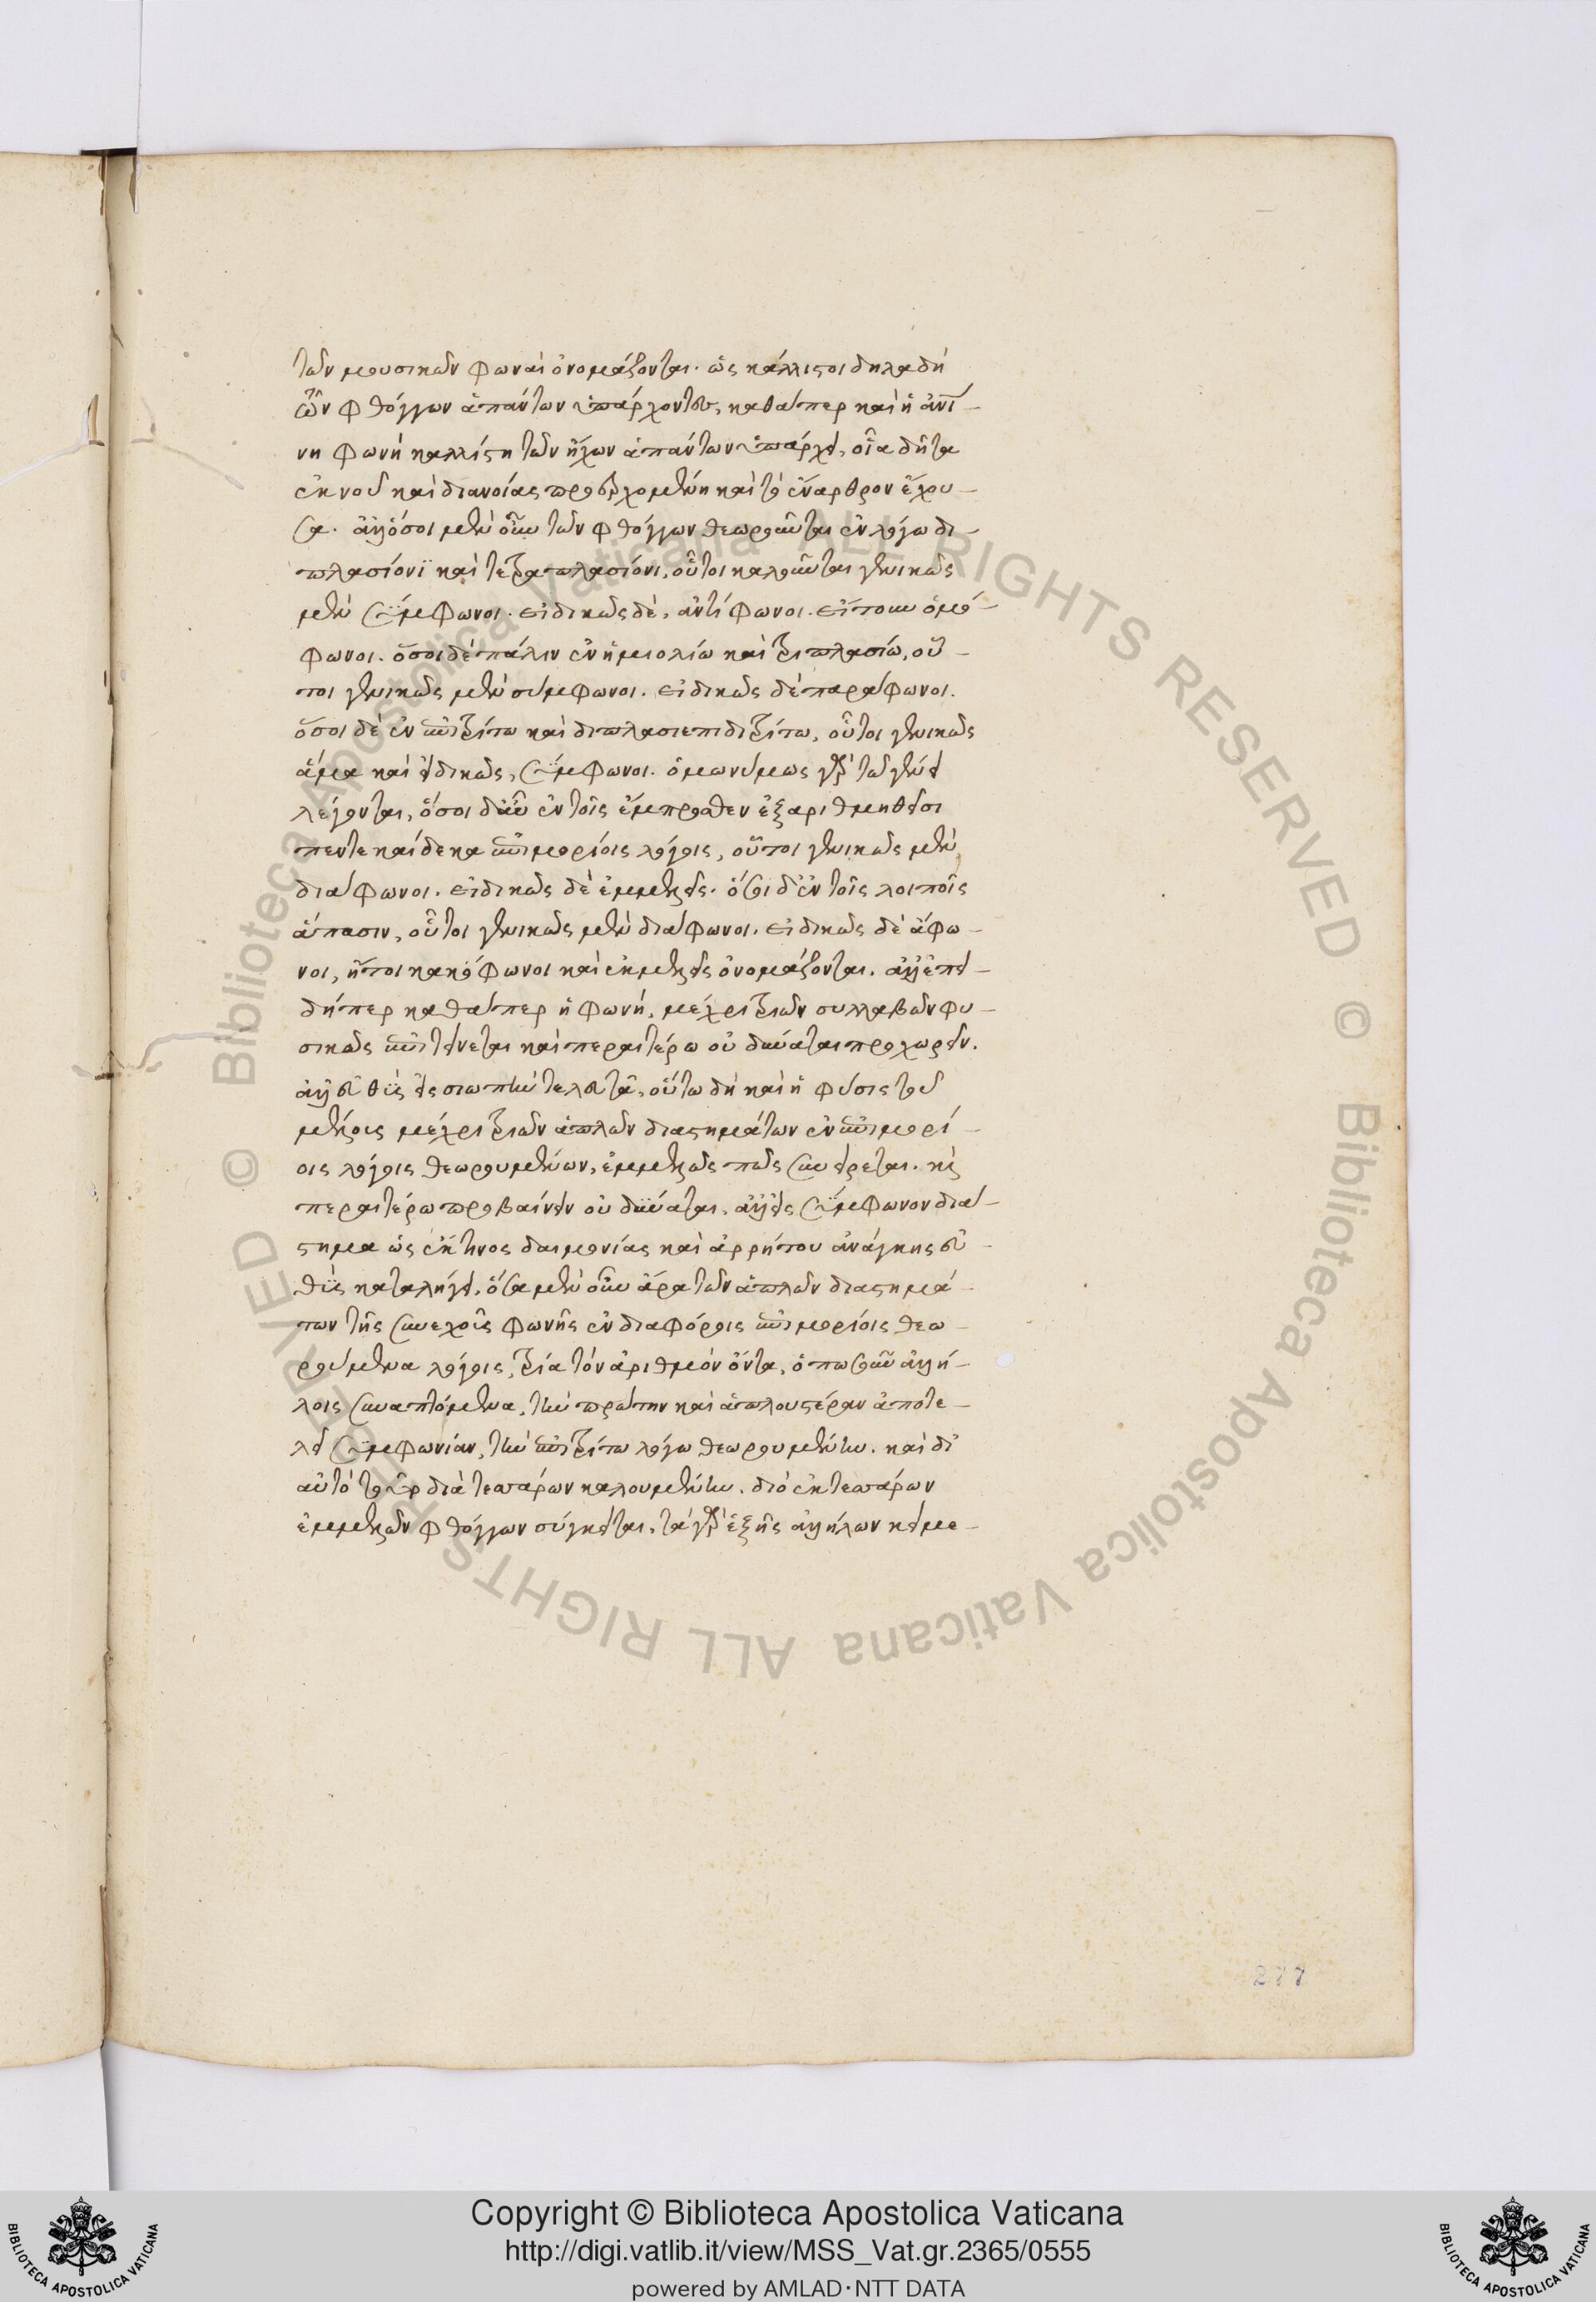 τῶν μουσικῶν φωναὶ ὀνομάζονται. ὡς κάλλιστοι δηλαδὴ
τῶν φθόγγων ἁπάντων ὑπάρχοντες, καθάπερ καὶ ἡ ἀνί-
νη φωνὴ καλλίστη τῶν ἤχων ἁπάντων ὑπάρχει, οἷα δῆτα
ἐκ νοῦ καὶ διανοίας προερχομένη καὶ τὸ ἔναρθρον ἔχου-
σα. ἀλλ' ὅσοι μὲν οὖν τῶν φθόγγων θεωροῦνται ἐν λόγω δι-
πλασίονϊ καὶ τετραπλασίονι, οὗτοι καλοῦνται γενικῶς
μὲν σύμφωνοι. εἰδικῶς δὲ, ἀντίφωνοι. εἴτουν ὁμό-
φωνοι. ὅσοι δὲ πάλιν ἐν ἡμιολίω καὶ τριπλασίω, οὗ-
τοι γενικῶς μὲν σύμφωνοι. εἰδικῶς δὲ παράφωνοι.
ὅσοι δὲ ἐν ἐπιτρίτω καὶ διπλασιεπιδιτρίτω, οὗτοι γενικῶς
ἅμα καὶ εἰδικῶς, σύμφωνοι. ὁμωνύμως γὰρ τῶ γένει
λέγονται, ὅσοι δ' αὖ ἐν τοῖς ἔμπροσθεν ἐξαριθμηθεῖσι
πεντεκαίδεκα ἐπιμορίοις λόγοις, οὗτοι γενικῶς μὲν
διάφωνοι. εἰδικῶς δὲ ἐμμελεῖς. ὅσοι δ' ἐν τοῖς λοιποῖς
ἅπασιν, οὗτοι γενικῶς μὲν διάφωνοι. εἰδικῶς δὲ ἄφω-
νοι, ἤτοι κακόφωνοι καὶ ἐκμελεῖς ὀνομάζονται. ἀλλ' ἐπει-
δήπερ καθάπερ ἡ φωνὴ, μέχρι τριῶν συλλαβῶν φυ-
σικῶς ἐπιτείνεται καὶ περαιτέρω οὐ δύναται προχωρεῖν.
ἀλλ' εὐθὺς εἰς σιωπὴν τελευτᾶ, οὕτω δὴ καὶ ἡ φύσις τοῦ
μέλους μέχρι τριῶν ἁπλῶν διαστημάτων ἐν ἐπιμορί-
οις λόγοις θεωρουμένων, ἐμμελῶς πῶς συνείρεται. καὶ
περαιτέρω προβαίνειν οὐ δύναται, ἀλλ' εἰς σύμφωνον διά-
στημα ὡς ἔκ τινος δαιμονίας καὶ ἀρρήτου ἀνάγκης εὐ-
θὺς καταλήγει. ὅσα μὲν οὖν ἄρα τῶν ἁπλῶν διαστημά-
των τῆς συνεχοῦς φωνῆς ἐν διαφόροις ἐπιμορίοις θεω-
ρούμενα λόγοις, τρία τὸν ἀριθμὸν ὄντα, ὁπωσοῦν ἀλλή-
λοις συναπτόμενα, τὴν πρώτην καὶ ἁπλουστέραν ἀποτε-
λεῖ συμφωνίαν, τὴν ἐπιτρίτω λόγω θεωρουμένην. καὶ δι'
αὐτὸ τοῦτο διὰ τεσσάρων καλουμένην. διὸ ἐκ τεσσάρων
ἐμμελῶν φθόγγων σύγκειται. τὰ γὰρ ἑξῆς ἀλλήλων κείμε-
277